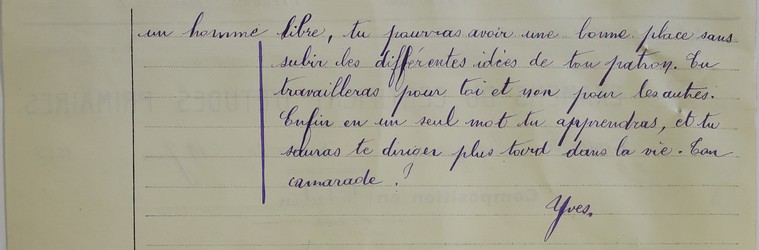 un homme libre, tu pourras avoir une bonne place sans
subir des différentes idées de ton patron. Tu
travailleras pour toi et non pour les autres.
Enfin en un seul mot tu apprendras, et tu
sauras te diriger plus tard dans la vie. Ton
camarade.
Yves.